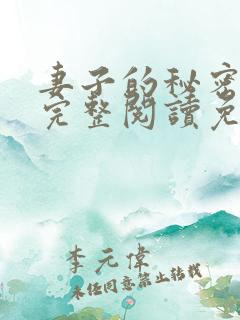 妻子的秘密
完整閱讀免
李元偉
未经同意禁止转载